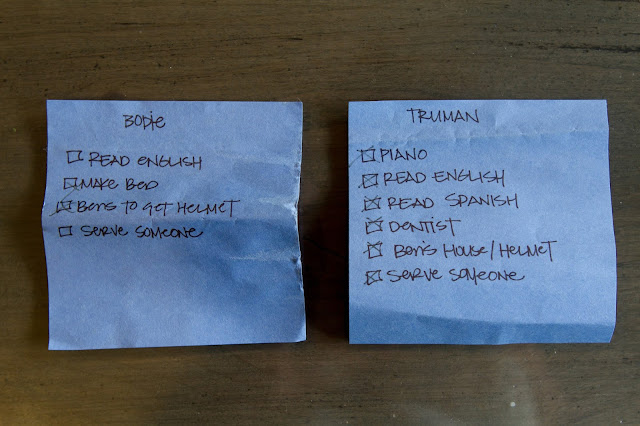 BODIE
READ ENGLISH
MAKE BED
BEN'S TO GET HELMET
SERVE SOMEONE
TRUMAN
PIANO
READ ENGLISH
READ SPANISH
DENTIST
BEN'S HOUSE/HELMET
SERVE SOMEONE